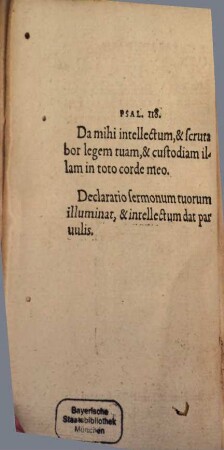 PSAL. 118.
Da mihi intellectum, & ſcruta
bor legem tuam, & cuſtodiam il-
lam in toto corde meo.
Declaratio ſermonum tuorum
illuminat, & intellectum dat par
uulis.
Bayerische
Staatsbibliothek
München